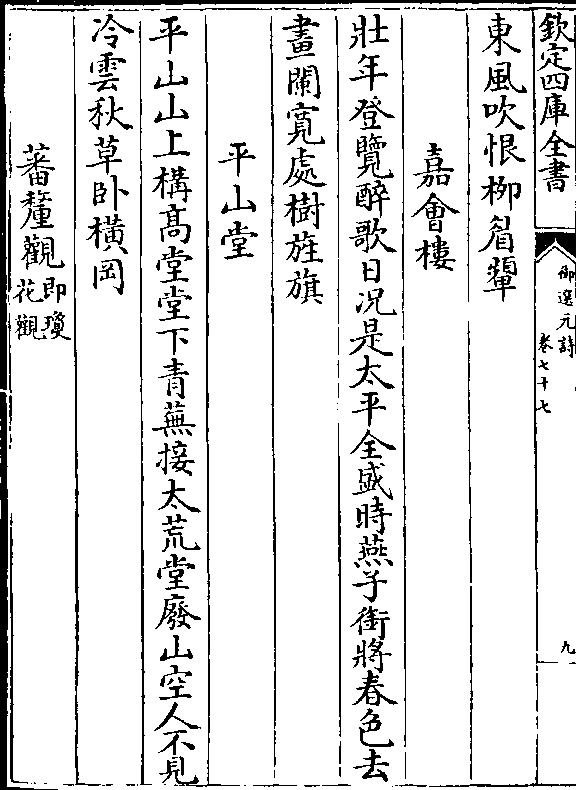 欽定四庫全書
御選元詩
卷七十七
九
東風吹恨柳眉顰
嘉會樓
壯年登覽醉歌日况是太平全盛時燕子銜將春色去
畫闌寛處樹旌旗
平山堂
平山山上構髙堂堂下青蕪接太荒堂廢山空人不見
冷雲秋草卧横岡
蕃釐觀即瓊花觀